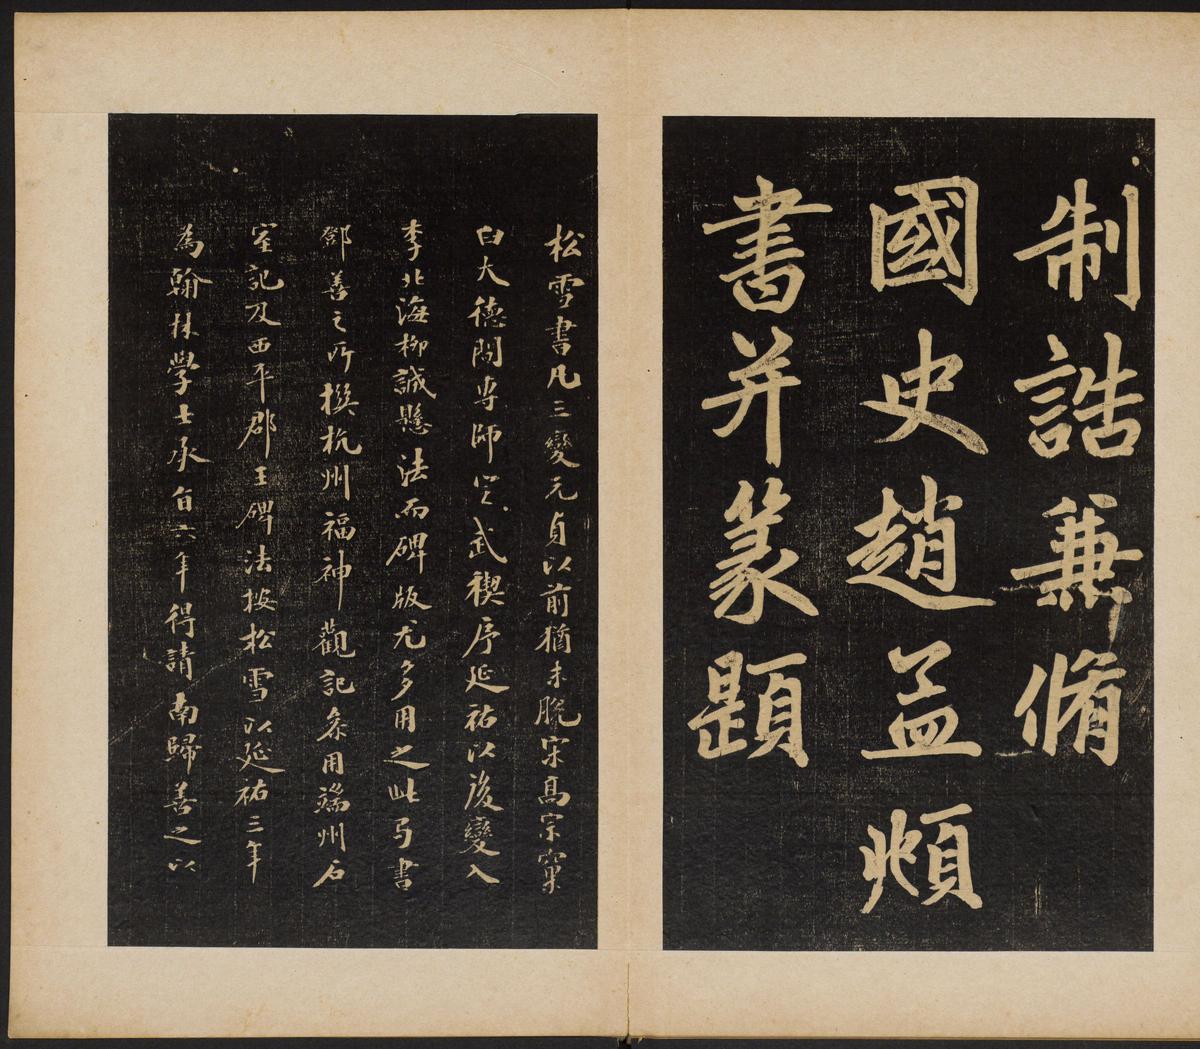 制誥兼脩
國史趙孟頫
書并篆題
松雪書凡三變元貞以前猶未脫宋高宗窠
臼大德間專師定武禊序延祐以後變入
李北海柳誠懸法而碑版尤多用之此為書
鄧善之所撰杭州福神觀記參用端州石
室記及西平郡王碑法按松雪以延祐三年
為翰林學士承旨六年得請南歸善之以